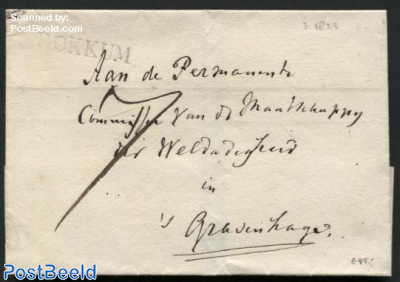 Scanned by:
www.PostBeeld.com
DOKKUM
1823
Aan de Permanente
7
Commissie Van de Maatschappy
der Weldadigheid
in
's Gravenhage.
PostBeeld
PostBeeld